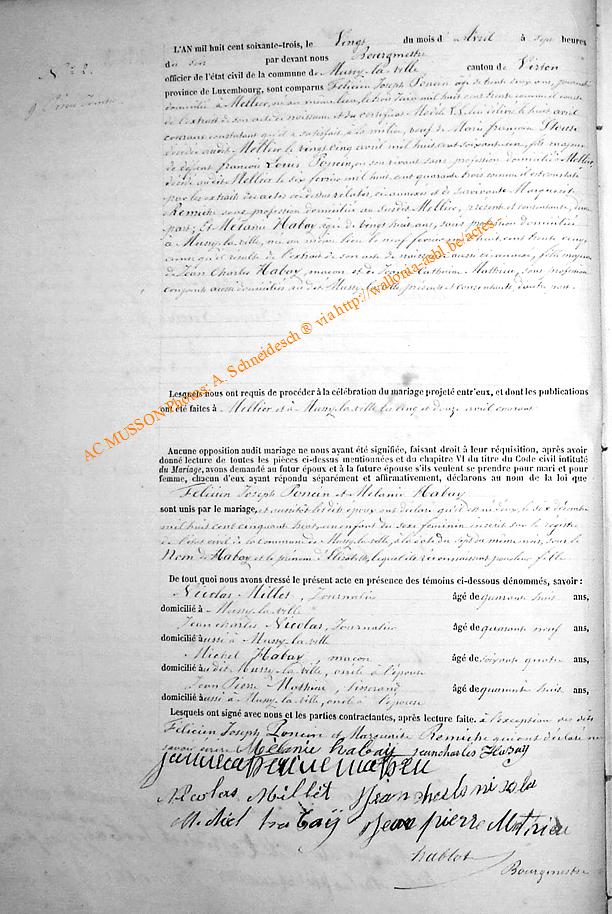 N° 2.
L'AN mil huit cent soixante-trois, le Vingt du mois d'Avril à sept heures
du soir par devant nous Bourgmestre
officier de l'état civil de la commune de Mussy-la-ville canton de Virton
province de Luxembourg, sont comparus Félicien Joseph Poncin âgé de trente deux ans, journalier
domicilié à Mellier, né au même lieu, le
de l'extrait de son acte de naissance et du certificat délivré le huit avril
courant constatant qu'il a satisfait à la milice, veuf de Marie françoise
décédée audit Mellier le vingt cinq avril mil huit cent soixante un, fils majeur
de défunt françois Louis Poncin, en son vivant sans profession domicilié à Mellier,
décédé audit Mellier le six février mil huit cent quarante trois comme il est constaté
par les extraits des actes ci-dessus relatés, ci-annexés et de survivante Marguerite
Remiche sans profession domiciliée au susdit Mellier, présente et consentante, d'une
part; Et Mélanie Habay âgée de vingt huit ans, sans profession domiciliée
à Mussy-la-ville, née au même lieu le neuf février mil huit cent trente cinq,
comme il résulte de l'extrait de son acte de naissance aussi ci-annexé, fille majeure
de Jean Charles Habay, maçon et de Jeanne Catherine Mathieu, sans profession
conjoints aussi domiciliés au dit Mussy-la-ville, présents et consentants, d'autre part.
Lesquels nous ont requis de procéder à la célébration du mariage projeté entr'eux, et dont les publications
ont été faites à Mellier et à Mussy-la-ville les cinq et douze avril courant
Aucune opposition audit mariage ne nous ayant été signifiée, faisant droit à leur réquisition, après avoir
donné lecture de toutes les pièces ci-dessus mentionnées et du chapitre VI du titre du Code civil intitulé
du Mariage, avons demandé au futur époux et à la future épouse s'ils veulent se prendre pour mari et pour
femme, chacun d'eux ayant répondu séparément et affirmativement, déclarons au nom de la loi que
Félicien Joseph Poncin et Mélanie Habay
sont unis par le mariage, et aussitôt les dits époux ont déclaré qu'il est né d'eux, le six décembre
mil huit cent cinquante huit, un enfant du sexe féminin inscrit sur le registre
de l'état civil de la commune de Mussy-la-ville, à la date du sept du même mois, sous le
Nom de Habay et le prénom d'Elisabeth, lequel ils reconnaissent pour leur fille
De tout quoi nous avons dressé le présent acte en présence des témoins ci-dessous dénommés, savoir :
Nicolas Millet, Journalier âgé de quarante huit ans,
domicilié à Mussy-la-ville
Jean charles Nicolas, Journalier âgé de quarante neuf ans,
domicilié aussi à Mussy-la-ville
Michel Habay, maçon âgé de soixante quatre ans,
domicilié audit Mussy-la-ville, oncle à l'épouse
Jean Pierre Mathieu, tisserand âgé de quarante huit ans,
domicilié aussi à Mussy-la-ville, oncle à l'épouse
Lesquels ont signé avec nous et les parties contractantes, après lecture faite. à l'exception des dits
Félicien Joseph Poncin et Marguerite Remiche qui ont déclaré ne
savoir écrire Mélanie habay jeancharles Habay
jannecatherinematheu
Nicolas Millet Jean charles nicolas
Michel habaÿ Jean pierre Mathieu
hablot
Bourgmestre
AC MUSSON Photos: A. Schneidesch ® via http://wallonia-asbl.be/actes-